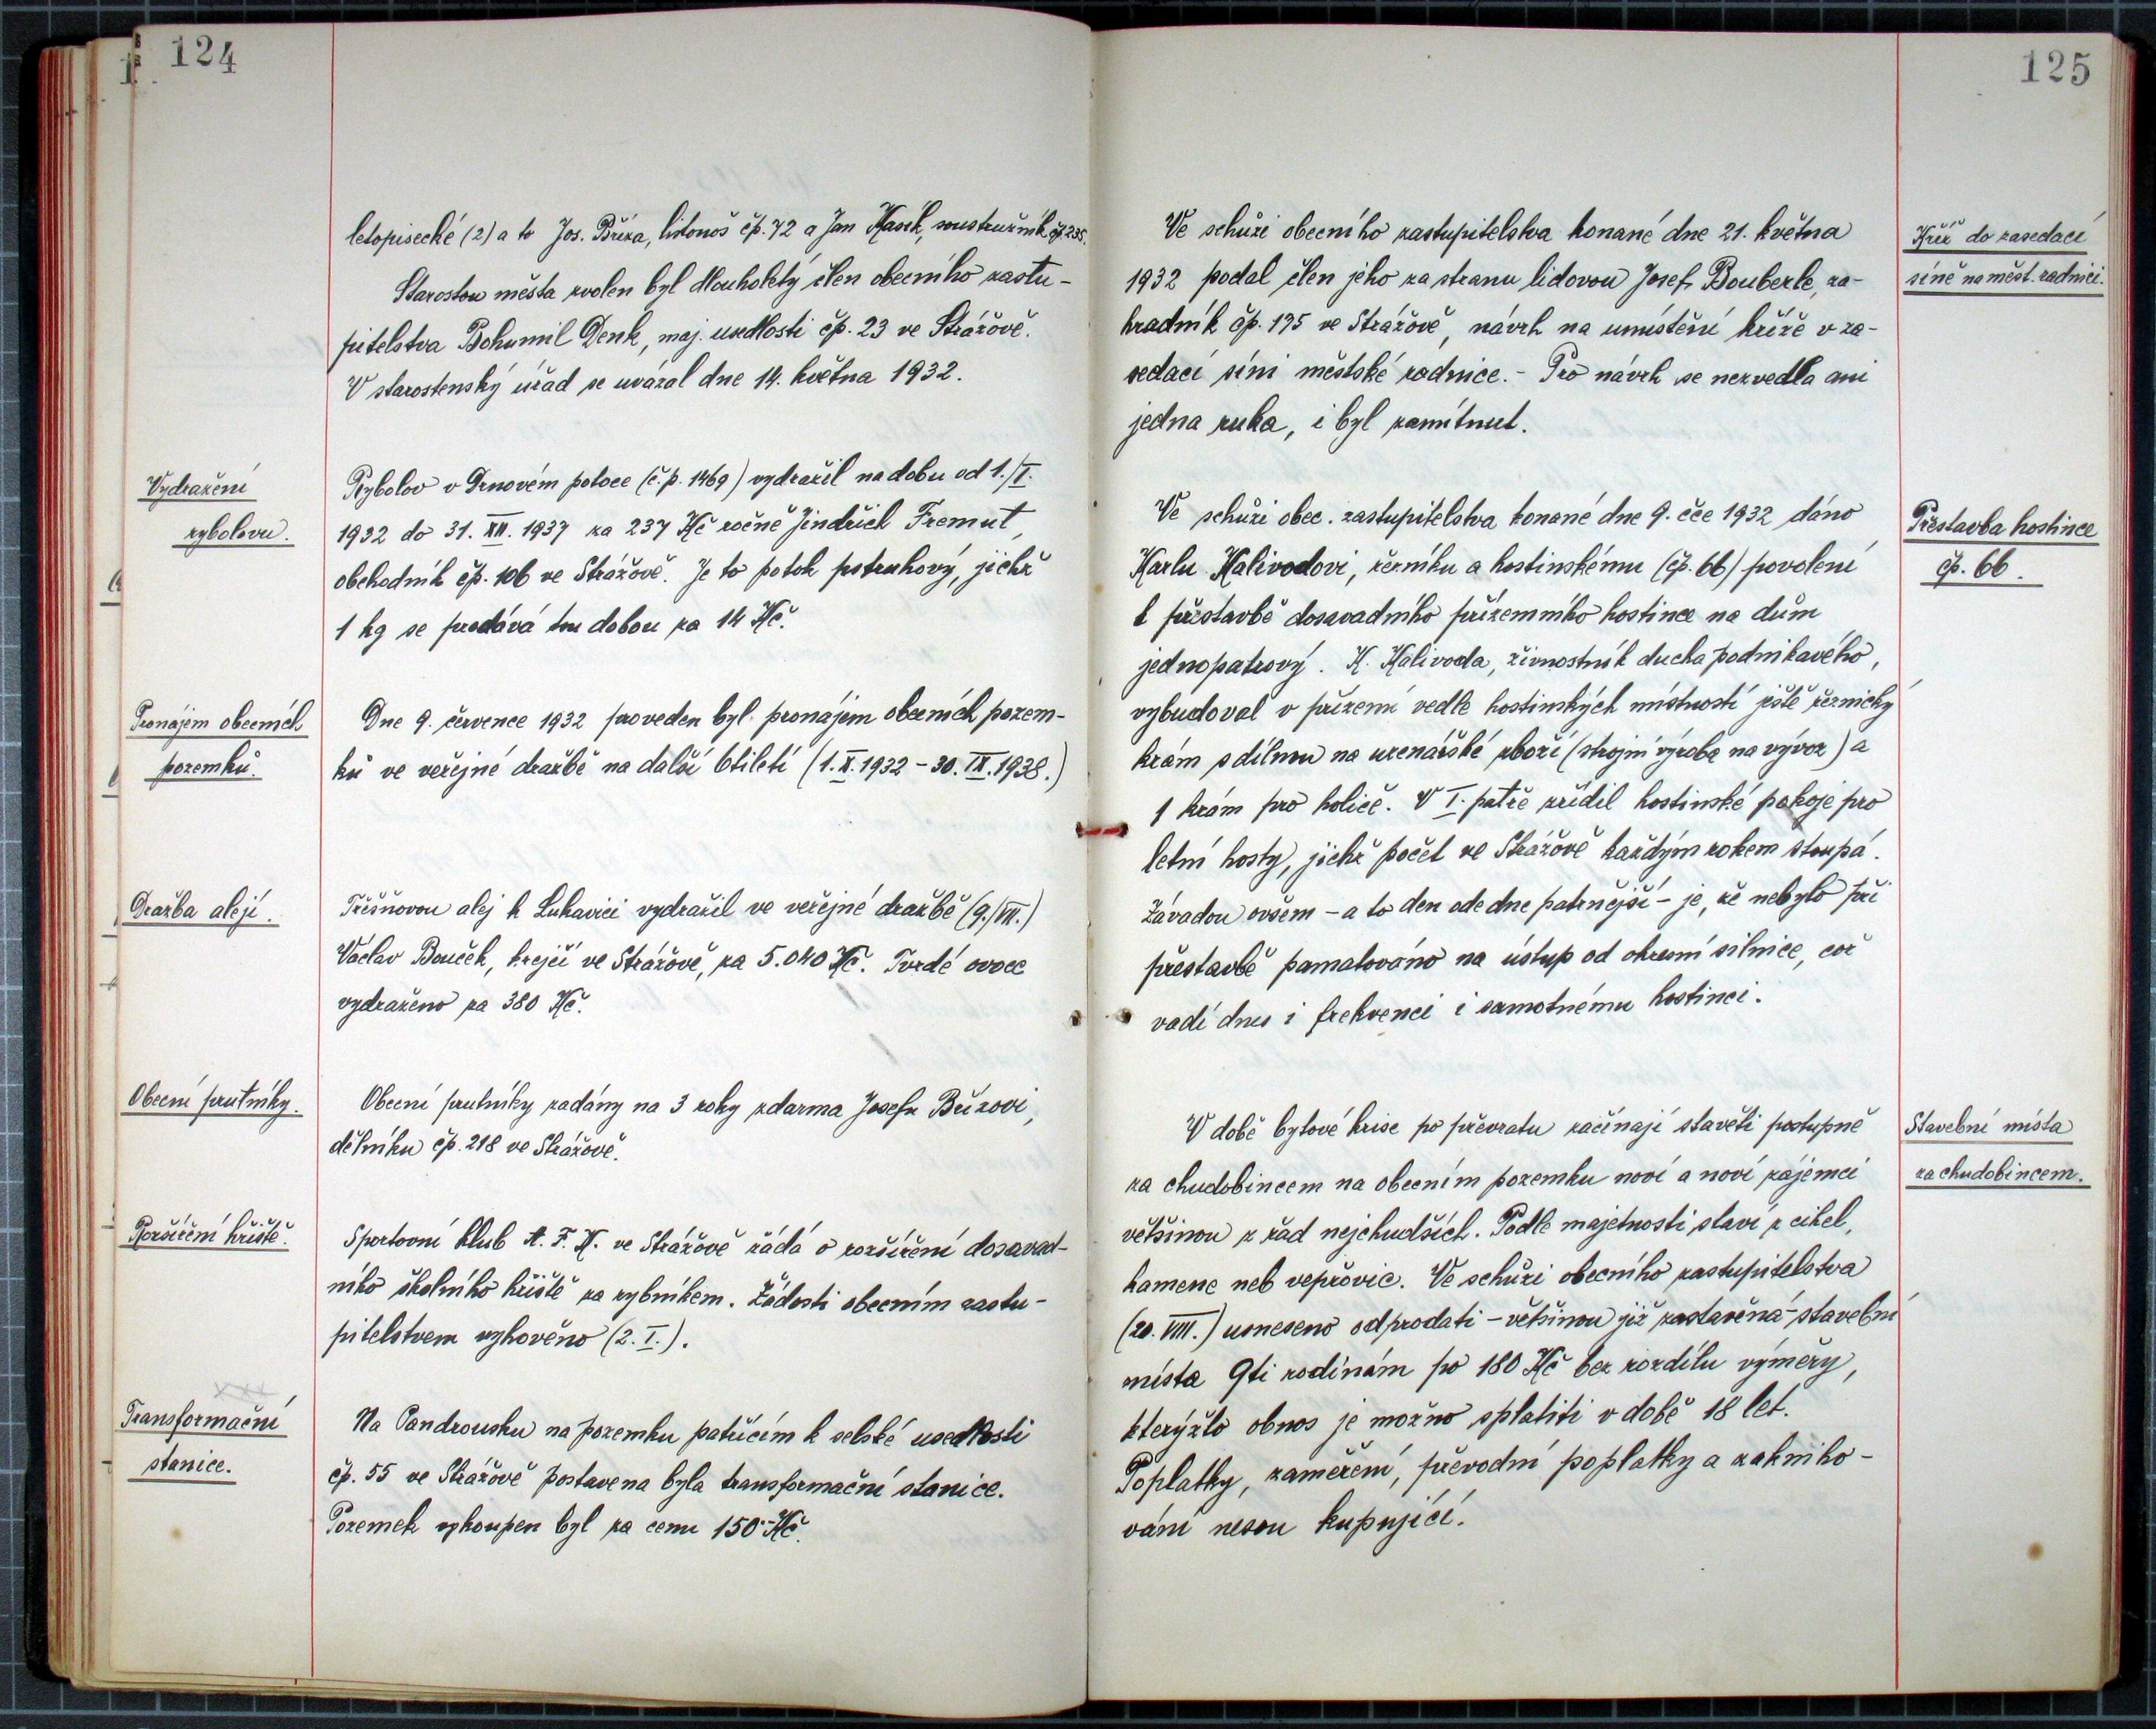 124
letopisecké (2) a to Jos. Bříza, listonoš čp. 72 a Jan Kasík, soustružník čp. 235.
Starostou města zvolen byl dlouholetý člen obecního zastu-
pitelstva Bohumil Denk, maj. usedlosti čp. 23 ve Strážově.
V starostenský úřad se uvázal dne 14. května 1932.
Vydražení
rybolovu.
Rybolov v Drnovém potoce (č. p. 1469) vydražil na dobu od 1./I.
1932 do 31. XII. 1937 za 237 Kč ročně Jindřich Fremut,
obchodník čp. 106 ve Strážově. Je to potok pstruhový, jichž
1 kg se prodává tou dobou za 14 Kč.
Pronájem obecních
pozemků.
Dne 9. července 1932 proveden byl pronájem obecních pozem-
ků ve veřejné dražbě na další 6tiletí (1. X. 1932 - 30. IX. 1938.)
Dražba alejí.
Třešňovou alej k Lukavici vydražil ve veřejné dražbě (9./VII.)
Václav Bouček, krejčí ve Strážově, za 5.040 Kč. Tvrdé ovoce
vydraženo za 380 Kč.
Obecní prutníky.
Obecní prutníky zadány na 3 roky zdarma Josefu Břízovi,
dělníku čp. 218 ve Strážově.
Rozšíření hřiště.
Sportovní klub A. F. K. ve Strážově žádá o rozšíření dosavad-
ního školního hřiště za rybníkem. Žádosti obecním zastu-
pitelstvem vyhověno (2. I.).
xxx
Transformační
stanice.
Na Pandrousku na pozemku patřícím k selské usedlosti
čp. 55 ve Strážově postavena byla transformační stanice.
Pozemek vykoupen byl za cenu 150·- Kč.
125
Ve schůzi obecního zastupitelstva konané dne 21. května
1932 podal člen jeho za stranu lidovou Josef Bouberle, za-
hradník čp. 195 ve Strážově, návrh na umístění kříže v za-
sedací síni městské radnice. - Pro návrh se nezvedla ani
jedna ruka, i byl zamítnut.
Kříž do zasedací
síně na měst. radnici.
Ve schůzi obec. zastupitelstva konané dne 9. čce 1932 dáno
Karlu Kalivodovi, řezníku a hostinskému (čp. 66) povolení
k přestavbě dosavadního přízemního hostince na dům
jednopatrový. K. Kalivoda, živnostník ducha podnikavého,
vybudoval v přízemí vedle hostinských místností ještě řeznický
krám s dílnou na uzenářské zboží (strojní výroba na vývoz) a
1 krám pro holiče. V I. patře zřídil hostinské pokoje pro
letní hosty, jichž počet ve Strážově každým rokem stoupá.
Závadou ovšem - a to den ode dne patrnější - je, že nebylo při
přestavbě pamatováno na ústup od okresní silnice, což
vadí dnes i frekvenci i samotnému hostinci.
Přestavba hostince
čp. 66.
V době bytové krise po převratu začínají stavěti postupně
za chudobincem na obecním pozemku noví a noví zájemci
většinou z řad nejchudších. Podle majetnosti staví z cihel,
kamene neb vepřovic. Ve schůzi obecního zastupitelstva
(20. VIII.) usneseno odprodati - většinou již zastavěná - stavební
místa 9ti rodinám po 180 Kč bez rozdílu výměry,
kterýžto obnos je možno splatiti v době 18 let.
Poplatky, zaměření, převodní poplatky a zakniho-
vání nesou kupující.
Stavební místa
za chudobincem.